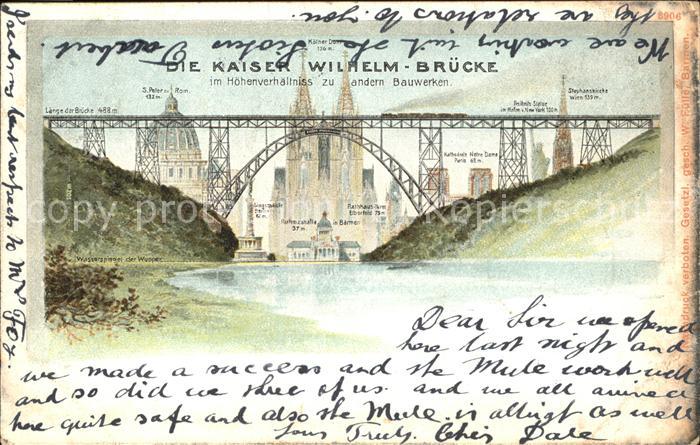 8906
they are relations to you.
We are working with the Sisters
DIE KAISER WILHELM-BRÜCKE
im Höhenverhältniss zu andern Bauwerken.
Kölner Dom
156 m.
S. Peter zu Rom.
132 m.
Länge der Brücke 488 m.
Freiheits Statue
im Hafen v. New York 100 m.
Stephanskirche
Wien 139 m.
Kathedrale Notre Dame
Paris 68 m.
Siegessäule
Berlin
61 m.
Ruhmeshalle in Barmen
37 m.
Rathhaus-Turm
Elberfeld 79 m.
Wasserspiegel der Wupper.
Copyright
Nachdruck verboten. Gesetzl. gesch. W. Fülle, Barmen.
best respects to Mr Fox.
Dear Sir we opened
here last night and
we made a success and the Mule work well
and so did we three of us. and we all arrived
here quite safe and also the Mule is allright as well
Yours Truly. Chis Dale